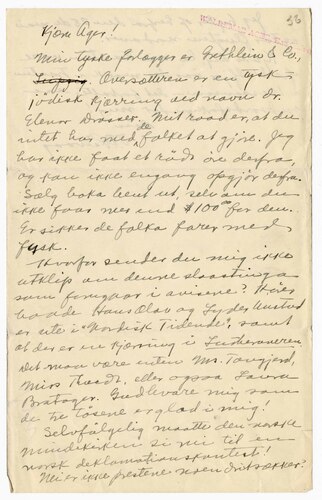 56
Kjære Ager:
Min tyske forlægger er Grethlein & Co.,
Leipzig. Oversætteren er en tysk
jødisk kjærring ved navn Dr.
Elenor Drosser. Mit raad er, at du
intet har med de folket at gjøre. Jeg
har ikke faat et rødt øre derfra,
og kan ikke engang opgjør derfra.
Sælg boka bent ut, selv om du
ikke faar mer end $100⁰⁰ for den.
Er sikker de folka farer med
fusk.
Hvorfor sender du mig ikke
utklip om denne slaastinga
som foregaar i avisene? Hører
baade Hans Olav og Lyder Unstad
er ute i "Nordisk Tidende", samt
at der er en kjærring i Lutheraneren.
Det maa være enten Mrs. Tangjerd,
Mirs Thoedt, eller ogsaa Laura
Bratager. Gud bevare mig som
de tre tøsene er glad i mig!
Selvfølgelig maatte den norske
mundkirken si nei til en
norsk deklamationskontest!
Nei er ikke prestene noen dritsækker?